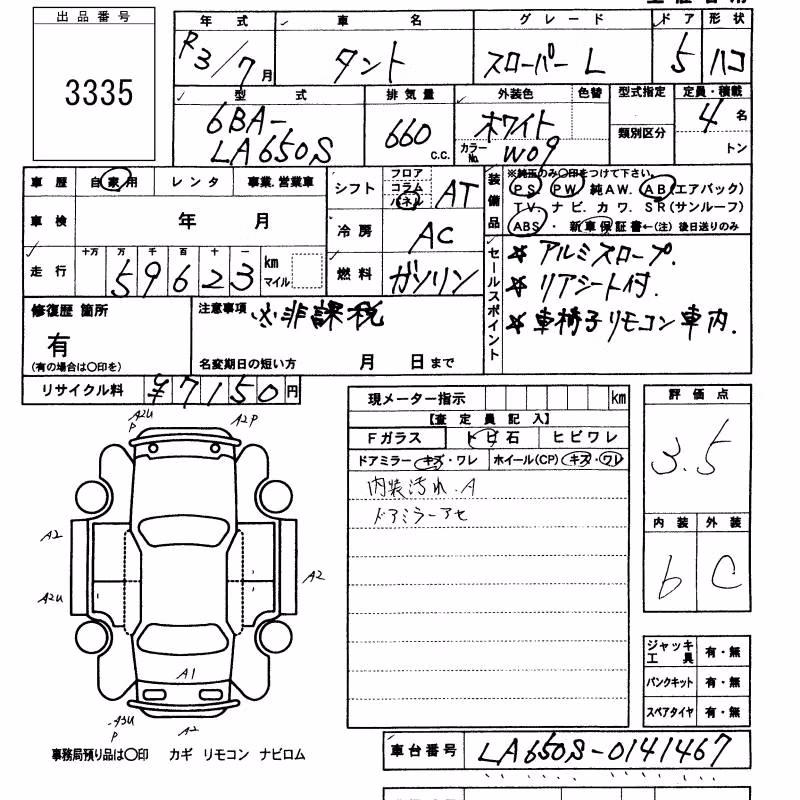 出品番号
3335
年式 車名 グレード ドア 形状
R3/7月 タント スローパー L 5 ハコ
型式 排気量 外装色 色替 型式指定 定員・積載
6BA-
LA650S 660 c.c. ホワイト 4名
カラーNo. W09 類別区分 トン
車歴 自家用 レンタ 事業.営業車
車検 年 月
走行 十万 万 千 百 十 一
59623 km マイル
シフト フロア コラム パネル AT
冷房 AC
燃料 ガソリン
装備品 ※純正のみ〇印をつけて下さい。
PS PW 純AW. AB(エアバック)
TV. ナビ. カワ. SR(サンルーフ)
ABS・ 新車保証書←(注)後日送りのみ
セールスポイント
☆ アルミスロープ.
☆ リアシート付.
☆ 車椅子リモコン車内.
修復歴 箇所
有
(有の場合は〇印を)
注意事項 ※非課税
名変期日の短い方 月 日まで
リサイクル料 ¥7150円
現メーター指示 km
【査定員記入】
Fガラス トビ石 ヒビワレ
ドアミラー キズ・ワレ ホイール(CP) キズ・ワレ
内装汚れ.A
ドアミラーアセ
評価点
3.5
内装 外装
b C
A2U
P
A2P
A2
A2U
A2
A1
A3U
P
A2
ジャッキ工具 有・無
パンクキット 有・無
スペアタイヤ 有・無
事務局預り品は〇印 カギ リモコン ナビロム
車台番号 LA650S-0141467